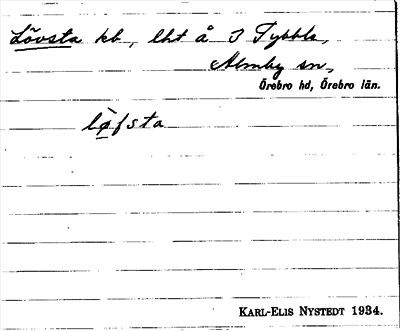 Lövsta kb, lht å J Tybble,
Almby sn,
Örebro hd, Örebro län.
lø̀fsta
KARL-ELIS NYSTEDT 1934.